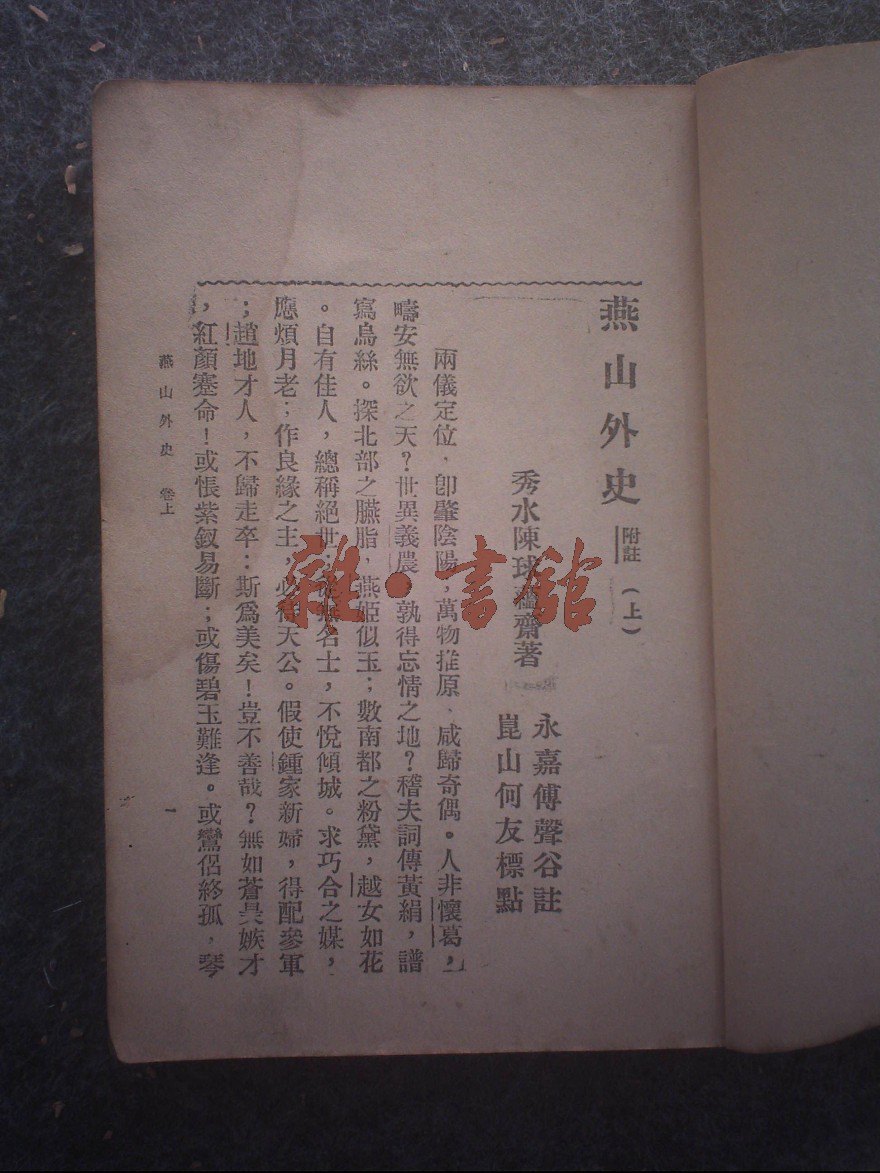 燕山外史 附註 (上)
秀水陳球蘊齋著
永嘉傅聲谷註
崑山何友標點
兩儀定位，卽肇陰陽，萬物推原，咸歸奇偶。人非懷葛，
疇安無欲之天？世異羲農，孰得忘情之地？稽夫詞傳黃絹，譜
寫烏絲。探北部之臙脂，燕姬似玉；數南都之粉黛，越女如花
。自有佳人，總稱絕世；從無名士，不悅傾城。求巧合之媒，
應煩月老；作良緣之主，必待天公。假使鍾家新婦，得配參軍
；趙地才人，不歸走卒：斯爲美矣！豈不善哉？無如蒼昊嫉才
，紅顏蹇命！或悵紫釵易斷；或傷碧玉難逢。或鸞侶終孤，琴
燕山外史 卷上
一
雜·書館